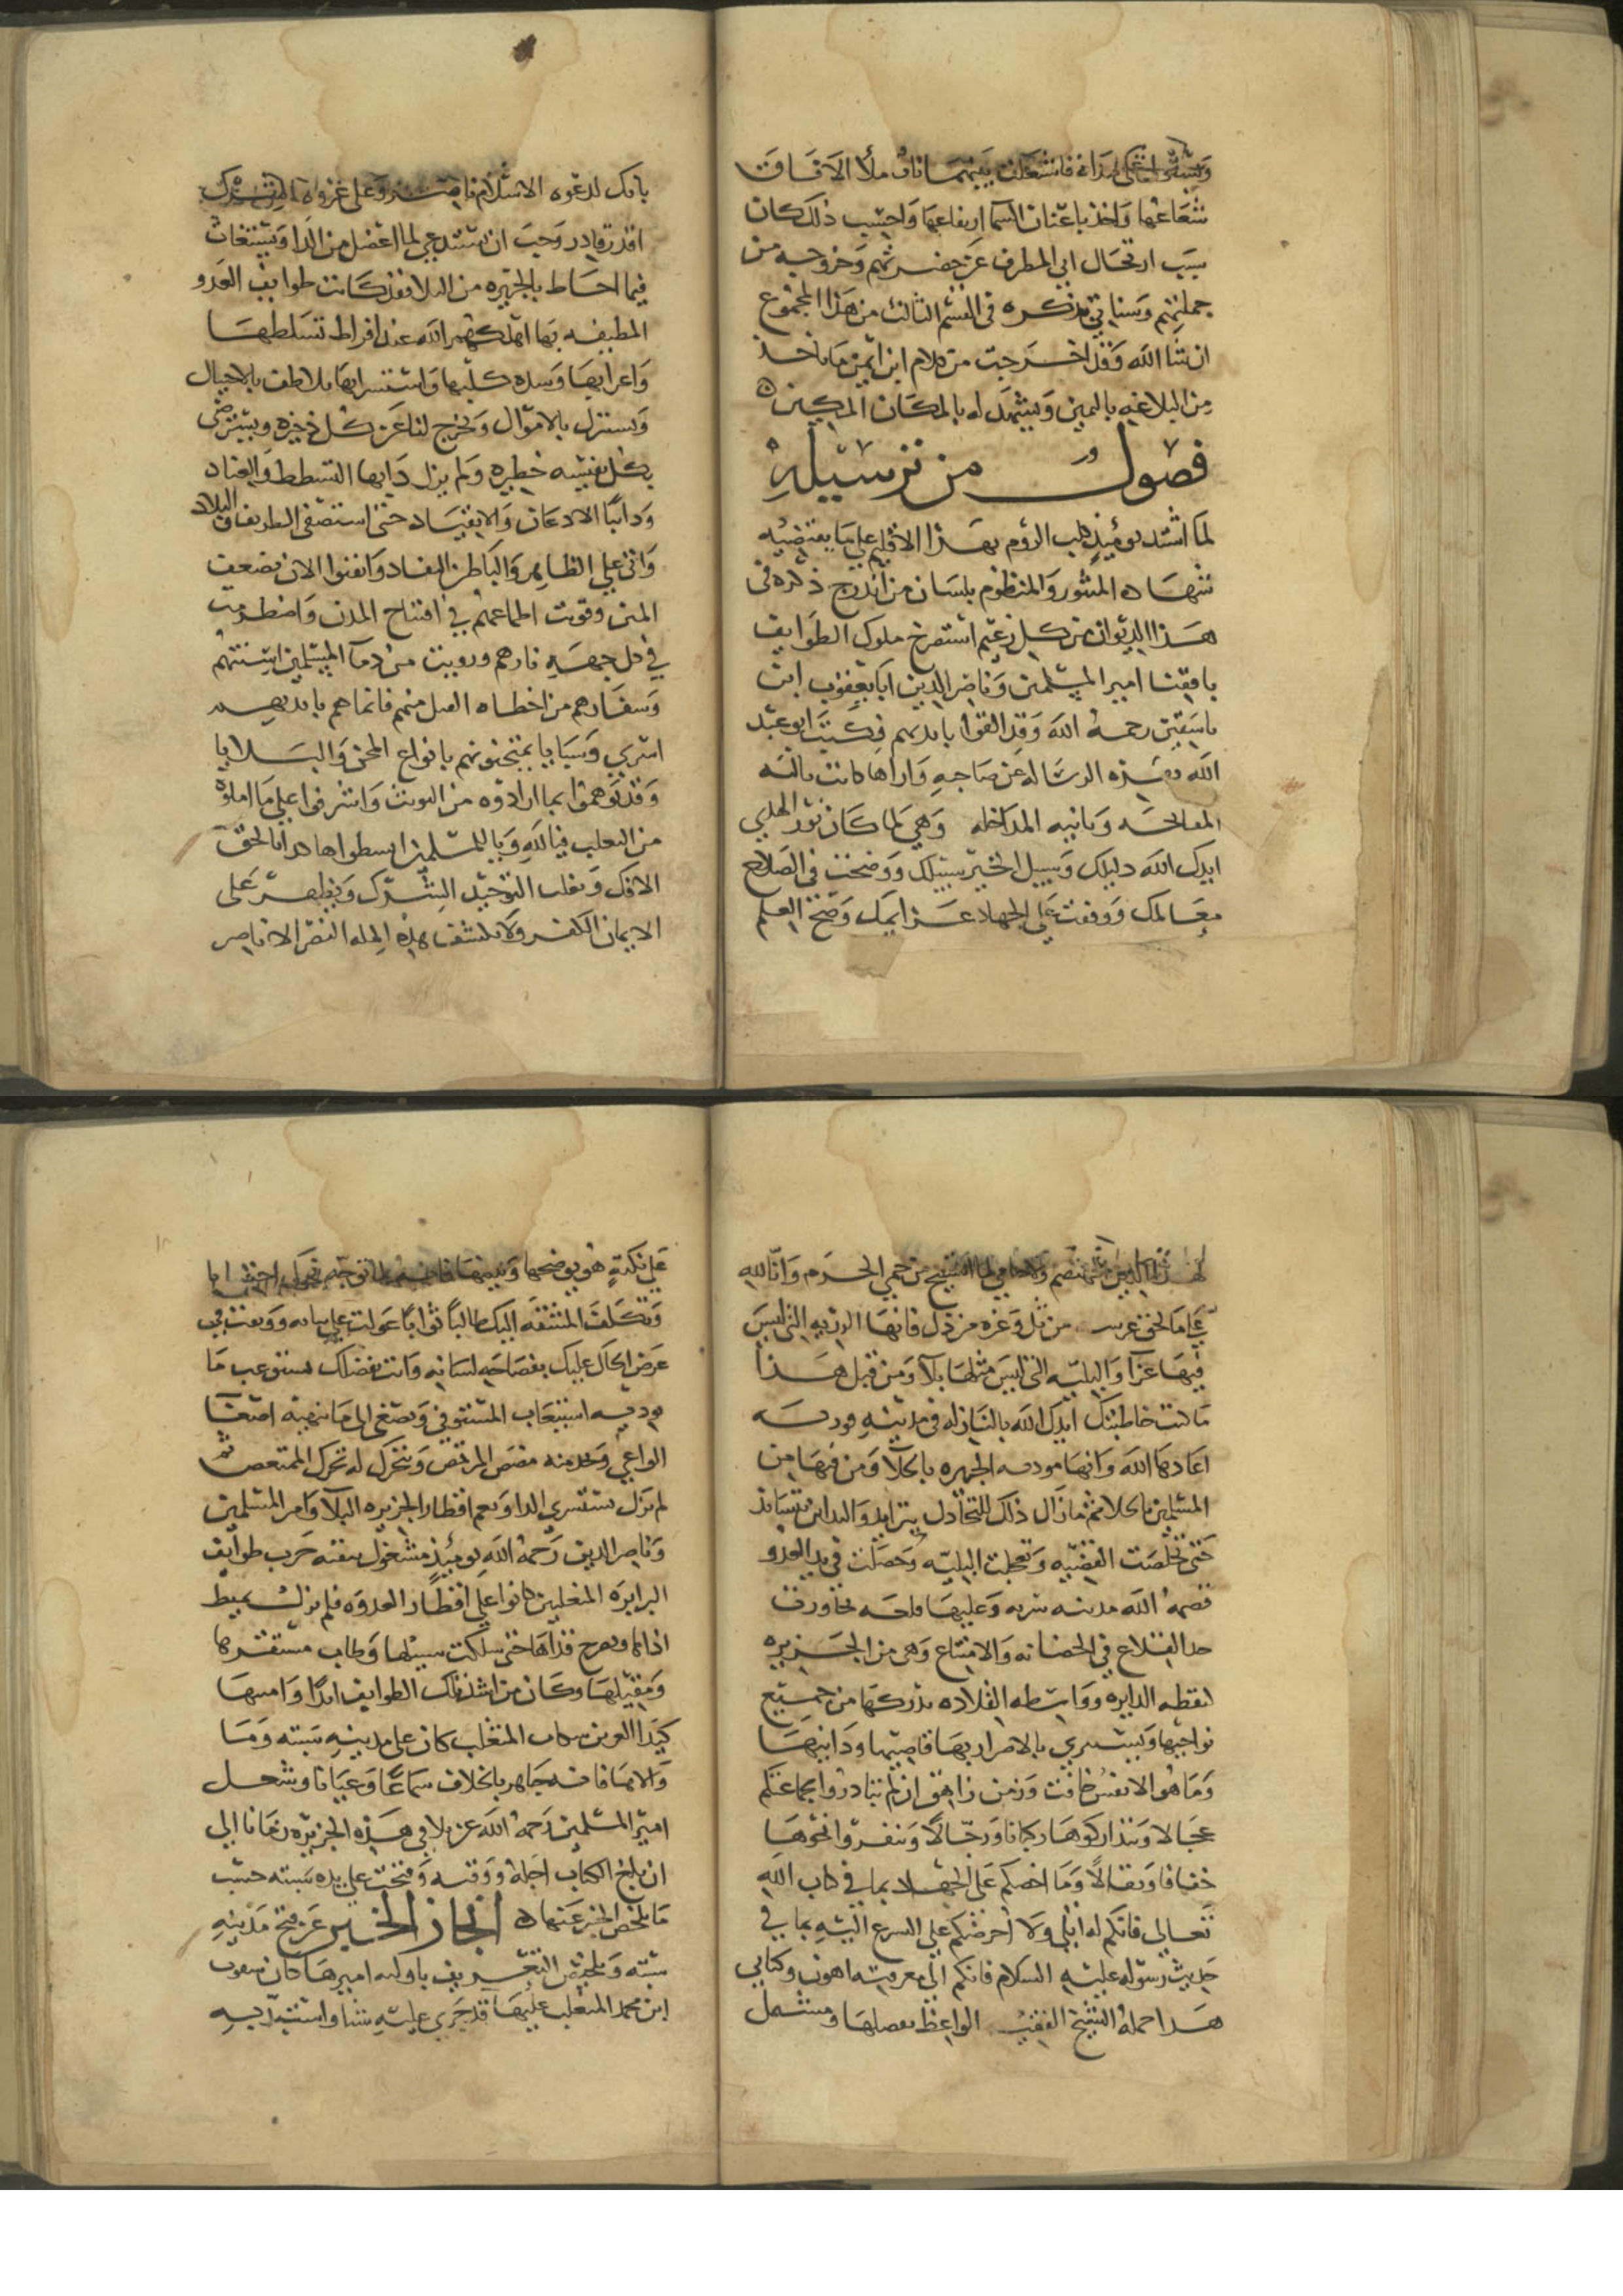 شعاعها واخذ باعنان السما ارتفاعها واحسب ذلك كان
سبب ارتحال ابي المطرف عن حضرتهم وخروجه من
جملتهم وسناتي بذكره في القسم الثالث من هذا المجموع
ان شا الله وقد اخرجت من كلام ابن ايمن ما ياخذ
من البلاغه باليمين ويشهد له بالمكان المكين
فصول من ترسيله
لما اشتد يومئذ كلب الروم بهذا الاقليم على ما يقتضيه
شهاده المنثور والمنظوم بلسان من اندرج ذكره في
هذا الديوان من كل زعيم استصرخ ملوك الطوايف
بافقنا امير المسلمين وناصر الدين ابا يعقوب ابن
تاشفين رحمه الله وقد القوا بايديهم فكتب ابو عبد
الله بهذه الرساله عن صاحبه واراها كانت بالنسه
المعالجه وثانيه المداخله وهي لما كان نور الهدي
ايدك الله دليلك وسبيل الخير سبيلك ووضحت في الصلاح
معالمك ووقفت على الجهاد عزايمك وصح العلم
بانك لدعوه الاسلام ناصر وعلى غزو الشرك
اقدر قادر وجب ان تستدعي لما اعضل من الدا وتستغاث
فيما احاط بالجزيره من البلا فقد كانت طوايف العدو
المطيفه بها اهلكهم الله عند افراط تسلطها
واعرابها وشده كلبها واستشرايها تلاطف بالاحتيال
وتستنزل بالاموال ويخرج لها عن كل ذخيره وتسترضى
بكل نفيسه خطيره ولم يزل دابها التشطط والعناد
ودابنا الاذعان والانقياد حتى استصفى الطريف والتلاد
واتى على الظاهر والباطن النفاد وايقنوا الان بضعف
المنن وقويت اطماعهم في افتتاح المدن واضطرمت
في كل جهه نارهم ورويت من دما المسلمين اسنتهم
وشفارهم من اخطاه القتل منهم فانما هم بايديهم
اسرى وسبايا يمتحنونهم بانواع المحن والبلايا
وقد هموا بما ارادوه من التوثب واشرفوا على ما املوه
من التغلب فيالله ويا للمسلمين ايسطوا هكذا بالحق
الافك ويغلب التوحيد الشرك ويظهر على
الايمان الكفر ولا يكشف هذه المله النصر الا ناصر
لهذا الدين المهتضم ولا حامي لما استبيح من حمى الحرم وانا لله
على ما لحق عرشه من ثل وعزه من ذل فانها الرزيه التي ليس
فيها عزا والبليه التي ليس مثلها بلا ومن قبل هذا
ما كنت خاطبتك ايدك الله بالنازله في مدينه قوريه
اعادها الله وانها موذنه الجزيره بالخلا ومن فيها من
المسلمين بالجلا ثم ما زال ذلك التخاذل يتزايد والتدابر يتساند
حتى تخلصت القضيه وتعجلت البليه وحصلت في يد العدو
قصمه الله مدينه سريه وعليها قلعه تجاوزت
حد القلاع في الحصانه والامتناع وهي من الجزيره
كنقطه الدايره وواسطه القلاده تدركها من جميع
نواحيها ويستوي بالاضرار بها قاصيها ودانيها
وما هو الا نفس خافت وزمن زاهق ان لم تبادروا بجماعتكم
عجالا وتتداركوها ركبانا ورجالا وتنفروا نحوها
خفافا وثقالا وما احضكم على الجهاد بما في كتاب الله
تعالى فانكم له اتلى ولا احرضكم على التسرع اليه بما في
حديث رسوله عليه السلام فانكم الى معرفته اهدى وكتابي
هذا حمله الشيخ الفقيه الواعظ يفصلها ومشتمل
على نكته هو يوضحها ويبينها فانه لما توجه نحوك احتسابا
وتكلف المشقه اليك طالبا ثوابا عولت على بيانه ووثقت في
عرض الحال عليك بفصاحه لسانه وانت بفضلك تستوعب ما
يوديه استيعاب المستوفي وتصغي الى ما ينهيه اصغا
الواعي وتجد منه مضض المرتمض وتتحرك له تحرك الممتعض
لم تزل تستشري الدا ويعم اقطار الجزيره البلا وامير المسلمين
وناصر الدين رحمه الله يومئذ مشغول ببقيه حرب طوايف
البرابره المتغلبين كانوا على اقطار العدوه فلم يزل يميط
اذاها ويعرج قذاها حتى سلكت سبيلها وطاب مستقرها
ومقيلها وكان من اشد تلك الطوايف ايدا وامتنها
كيدا المتغلب كان على مدينه سبته وما
والاها فانه جاهر بالخلاف سماعا وعيانا وشغل
امير المسلمين رحمه الله عن بلاد هذه الجزيره زمانا الى
ان بلغ الكتاب اجله ووقته وفتحت على يده سبته حسب
ما يلخص الخبر عنها ايجاز الخبر عن فتح مدينه
سبته وتلخيص التعريف باوليه اميرها كان سقوت
ابن محمد المتغلب عليها قد جرى عليه سبا واستبد به